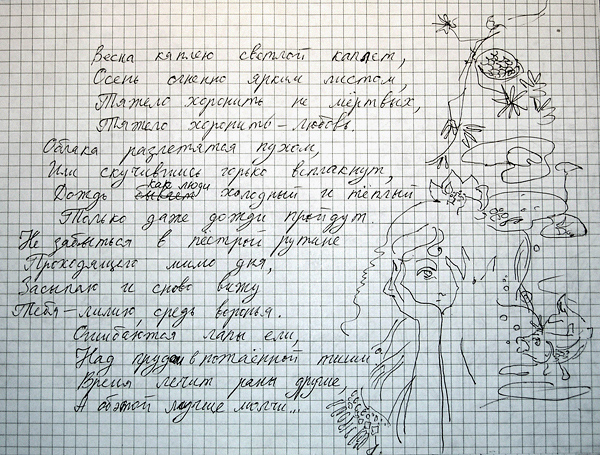 Весна каплею светлой каплет,
Осень огненно ярким листом,
Тяжело хоронить не мёртвых,
Тяжело хоронить – любовь.
Облака разлетятся пухом,
Или скучившись горько всплакнут,
как люди
Дождь бывает холодный и тёплый
Только даже дожди пройдут.
Не забыться в пёстрой рутине
Проходящего мимо дня,
Засыпаю и снова вижу
Тебя – лилию, средь воронья.
Ошибаются лапы ели,
Над прудом в потаённой тиши
Время лечит раны другие
А об этой лучше молчи...